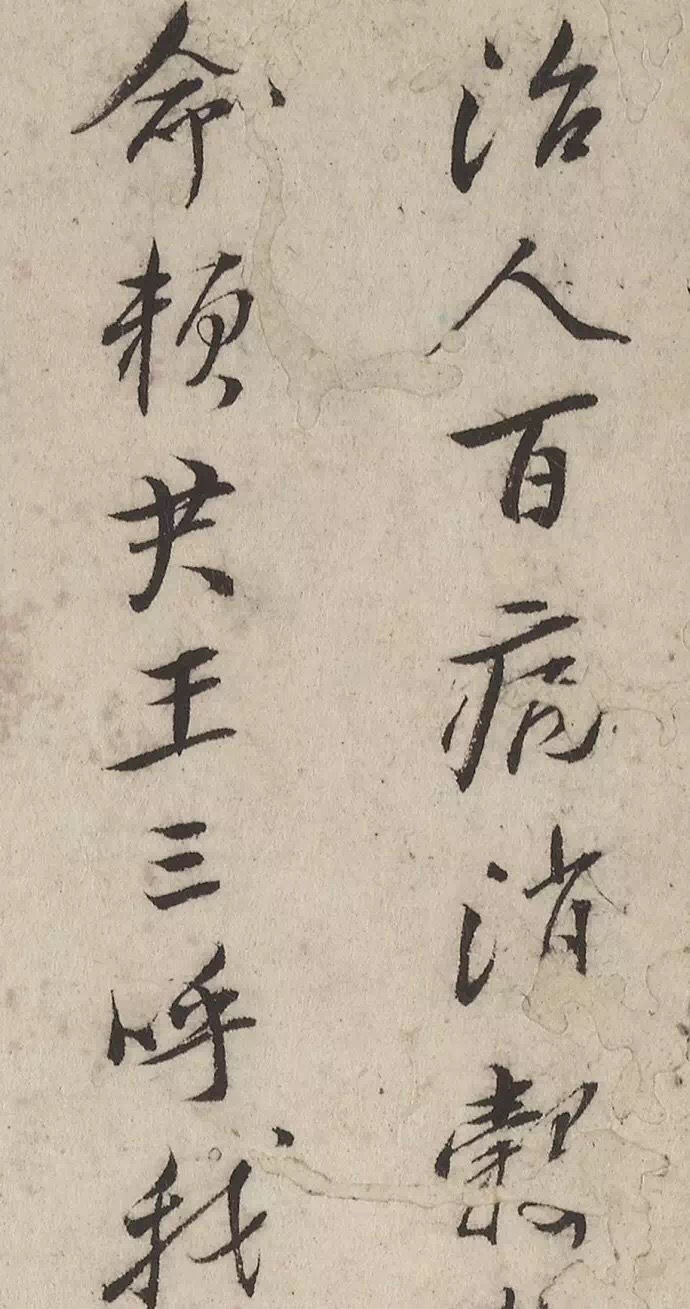 治人百病消穀
命頼共王三呼我